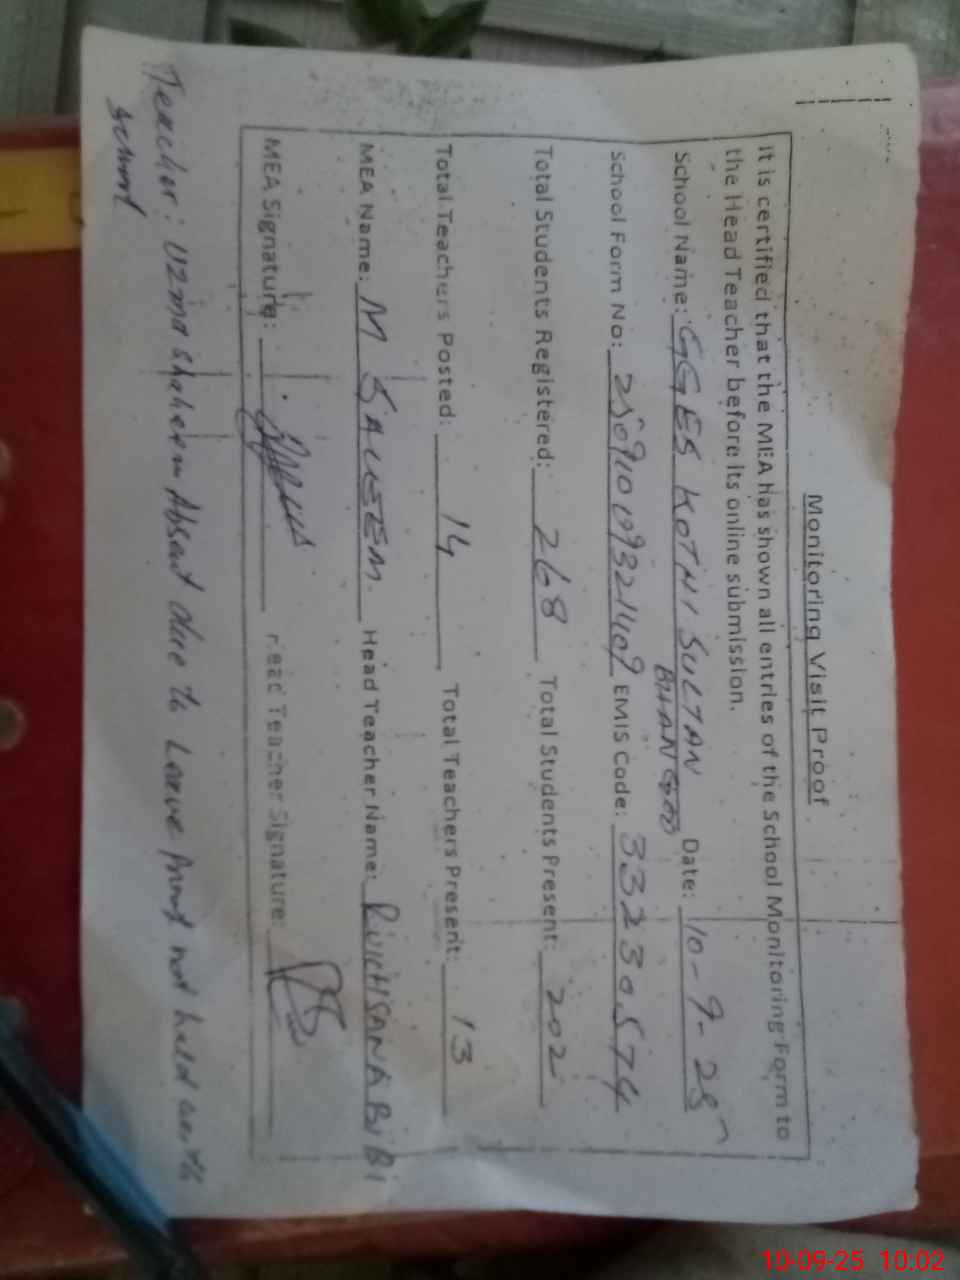 Monitoring Visit Proof
It is certified that the MEA has shown all entries of the School Monitoring Form to
the Head Teacher before its online submission.
School Name: GGES KOTHI SULTAN Date: 10-9-25
BHANGOO
School Form No: 250910099321409 EMIS Code: 33230574
Total Students Registered: 268 Total Students Present: 202
Total Teachers Posted: 14 Total Teachers Present: 13
MEA Name: M SALEEM Head Teacher Name: RUKHSANA BiBi
MEA Signature: Head Teacher Signature:
Teacher: Uzma shaheen Absent due to Leave Proof not held with
school
10-09-25 10:02